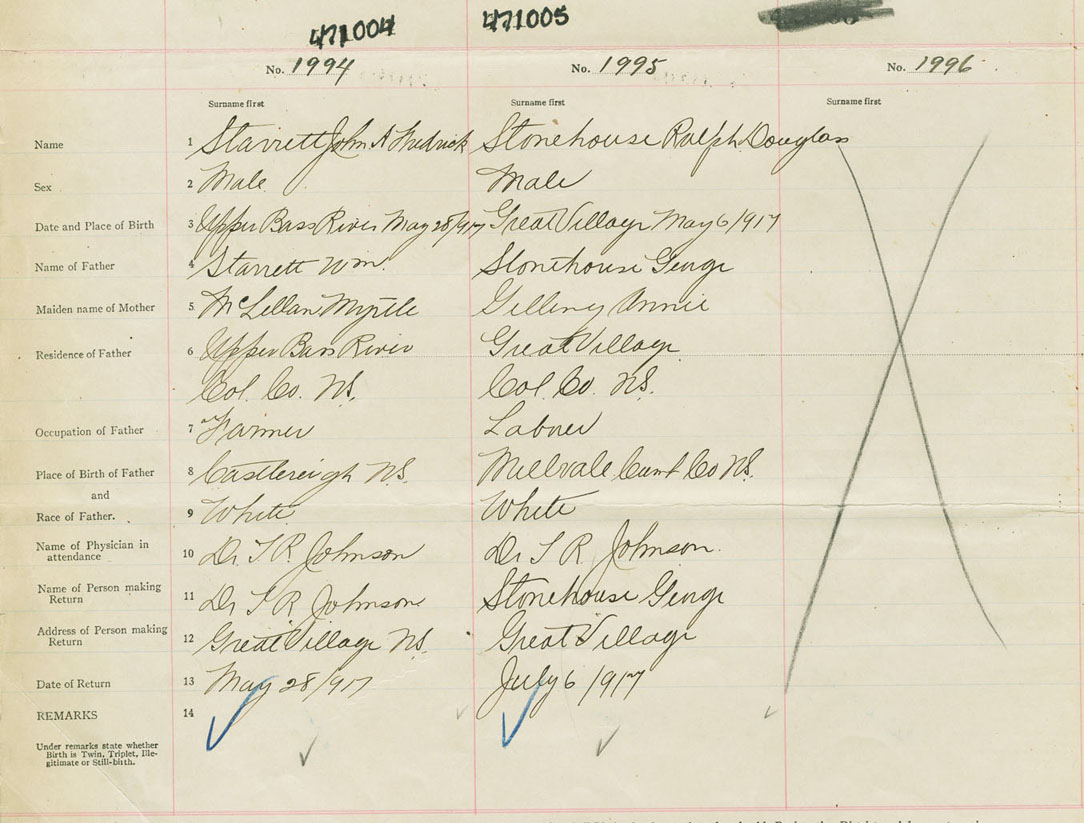 471004 471005
No. 1994 No. 1995 No. 1996
Surname first Surname first Surname first
Name 1 Starrett John A Fredrick Stonehouse Ralph Douglas
Sex 2 Male Male
Date and Place of Birth 3 Upper Bass River May 28/917 Great Village May 6/1917
Name of Father 4 Starrett Wm. Stonehouse George
Maiden name of Mother 5 McLellan Myrtle Annie
Residence of Father 6 Upper Bass River Great Village
Col. Co. N.S. Col. Co. N.S.
Occupation of Father 7 Farmer Laborer
Place of Birth of Father 8 Castlereigh N.S. Millvale Cum Co N.S.
and
Race of Father. 9 White White
Name of Physician in
attendance 10 Dr. T R Johnson Dr T R Johnson.
Name of Person making
Return 11 Dr T R Johnson Stonehouse George
Address of Person making
Return 12 Great Village N.S. Great Village
Date of Return 13 May 28/917 July 6/917
REMARKS 14
Under remarks state whether
Birth is Twin, Triplet, Ille-
gitimate or Still-birth.